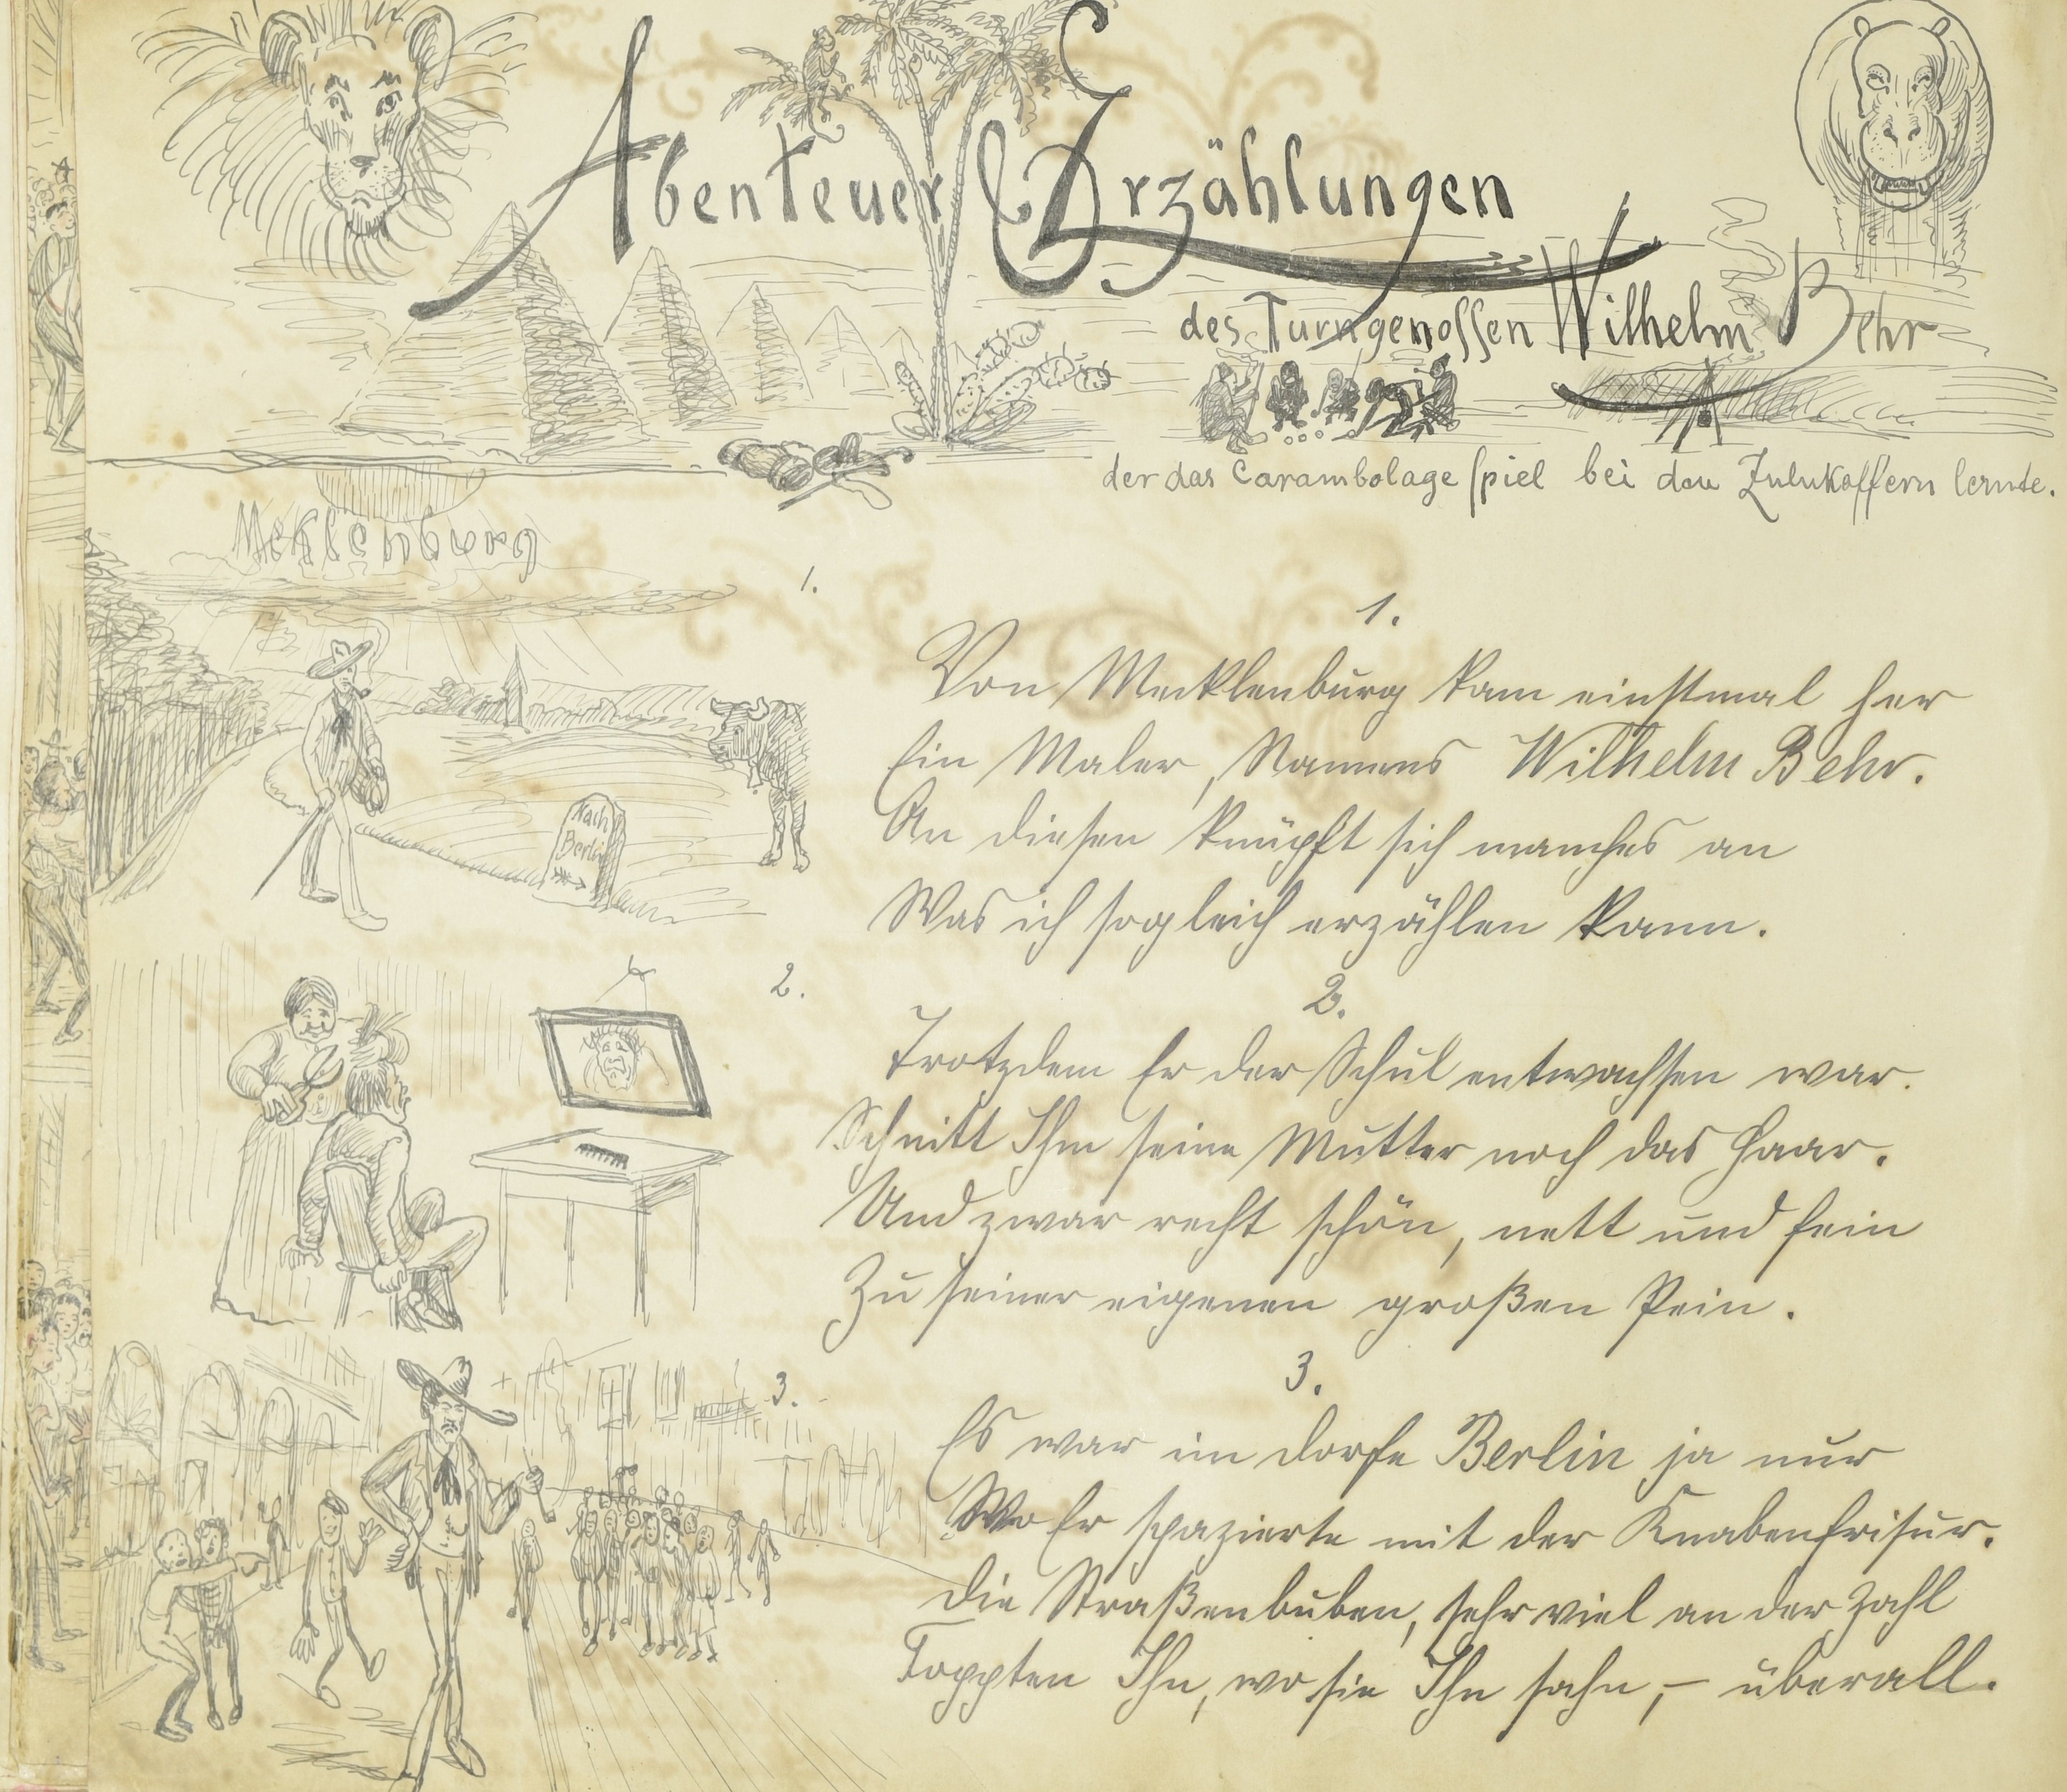 Abenteuer & Erzählungen
des Turngenossen Wilhelm Behr
der das Carambolage spiel bei den Zulukaffern lernte.
Meklenburg
1.
Nach
Berlin
1.
Von Mecklenburg kam einstmal her
Ein Maler, Namens Wilhelm Behr.
An diesen knüpft sich manches an
Was ich sogleich erzählen kann.
2.
2.
Trotzdem Er der Schul entwachsen war.
Schnitt Ihm seine Mutter noch das Haar.
Und zwar recht schön, nett und fein
Zu seiner eigenen großen Pein.
3.
3.
Es war im Dorfe Berlin ja nur
Wo Er spazierte mit der Knabenfrisur.
Die Straßenbuben, sehr viel an der Zahl
Foppten Ihn, wo sie Ihn sahn, – überall.